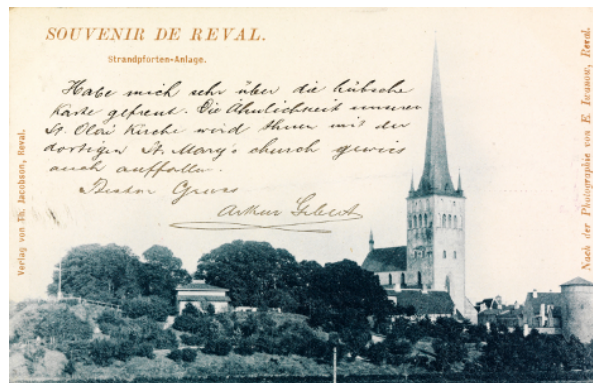 SOUVENIR DE REVAL.
Strandpforten-Anlage.
Habe mich sehr über die hübsche
Karte gefreut. Die Ähnlichkeit unserer
St. Olai Kirche wird Ihnen mit der
dortigen St. Mary's church gewiss
auch auffallen.
Gruss
Arthur
Verlag von Th. Jacobson, Reval.
Nach der Photographie von E. Iwanow, Reval.